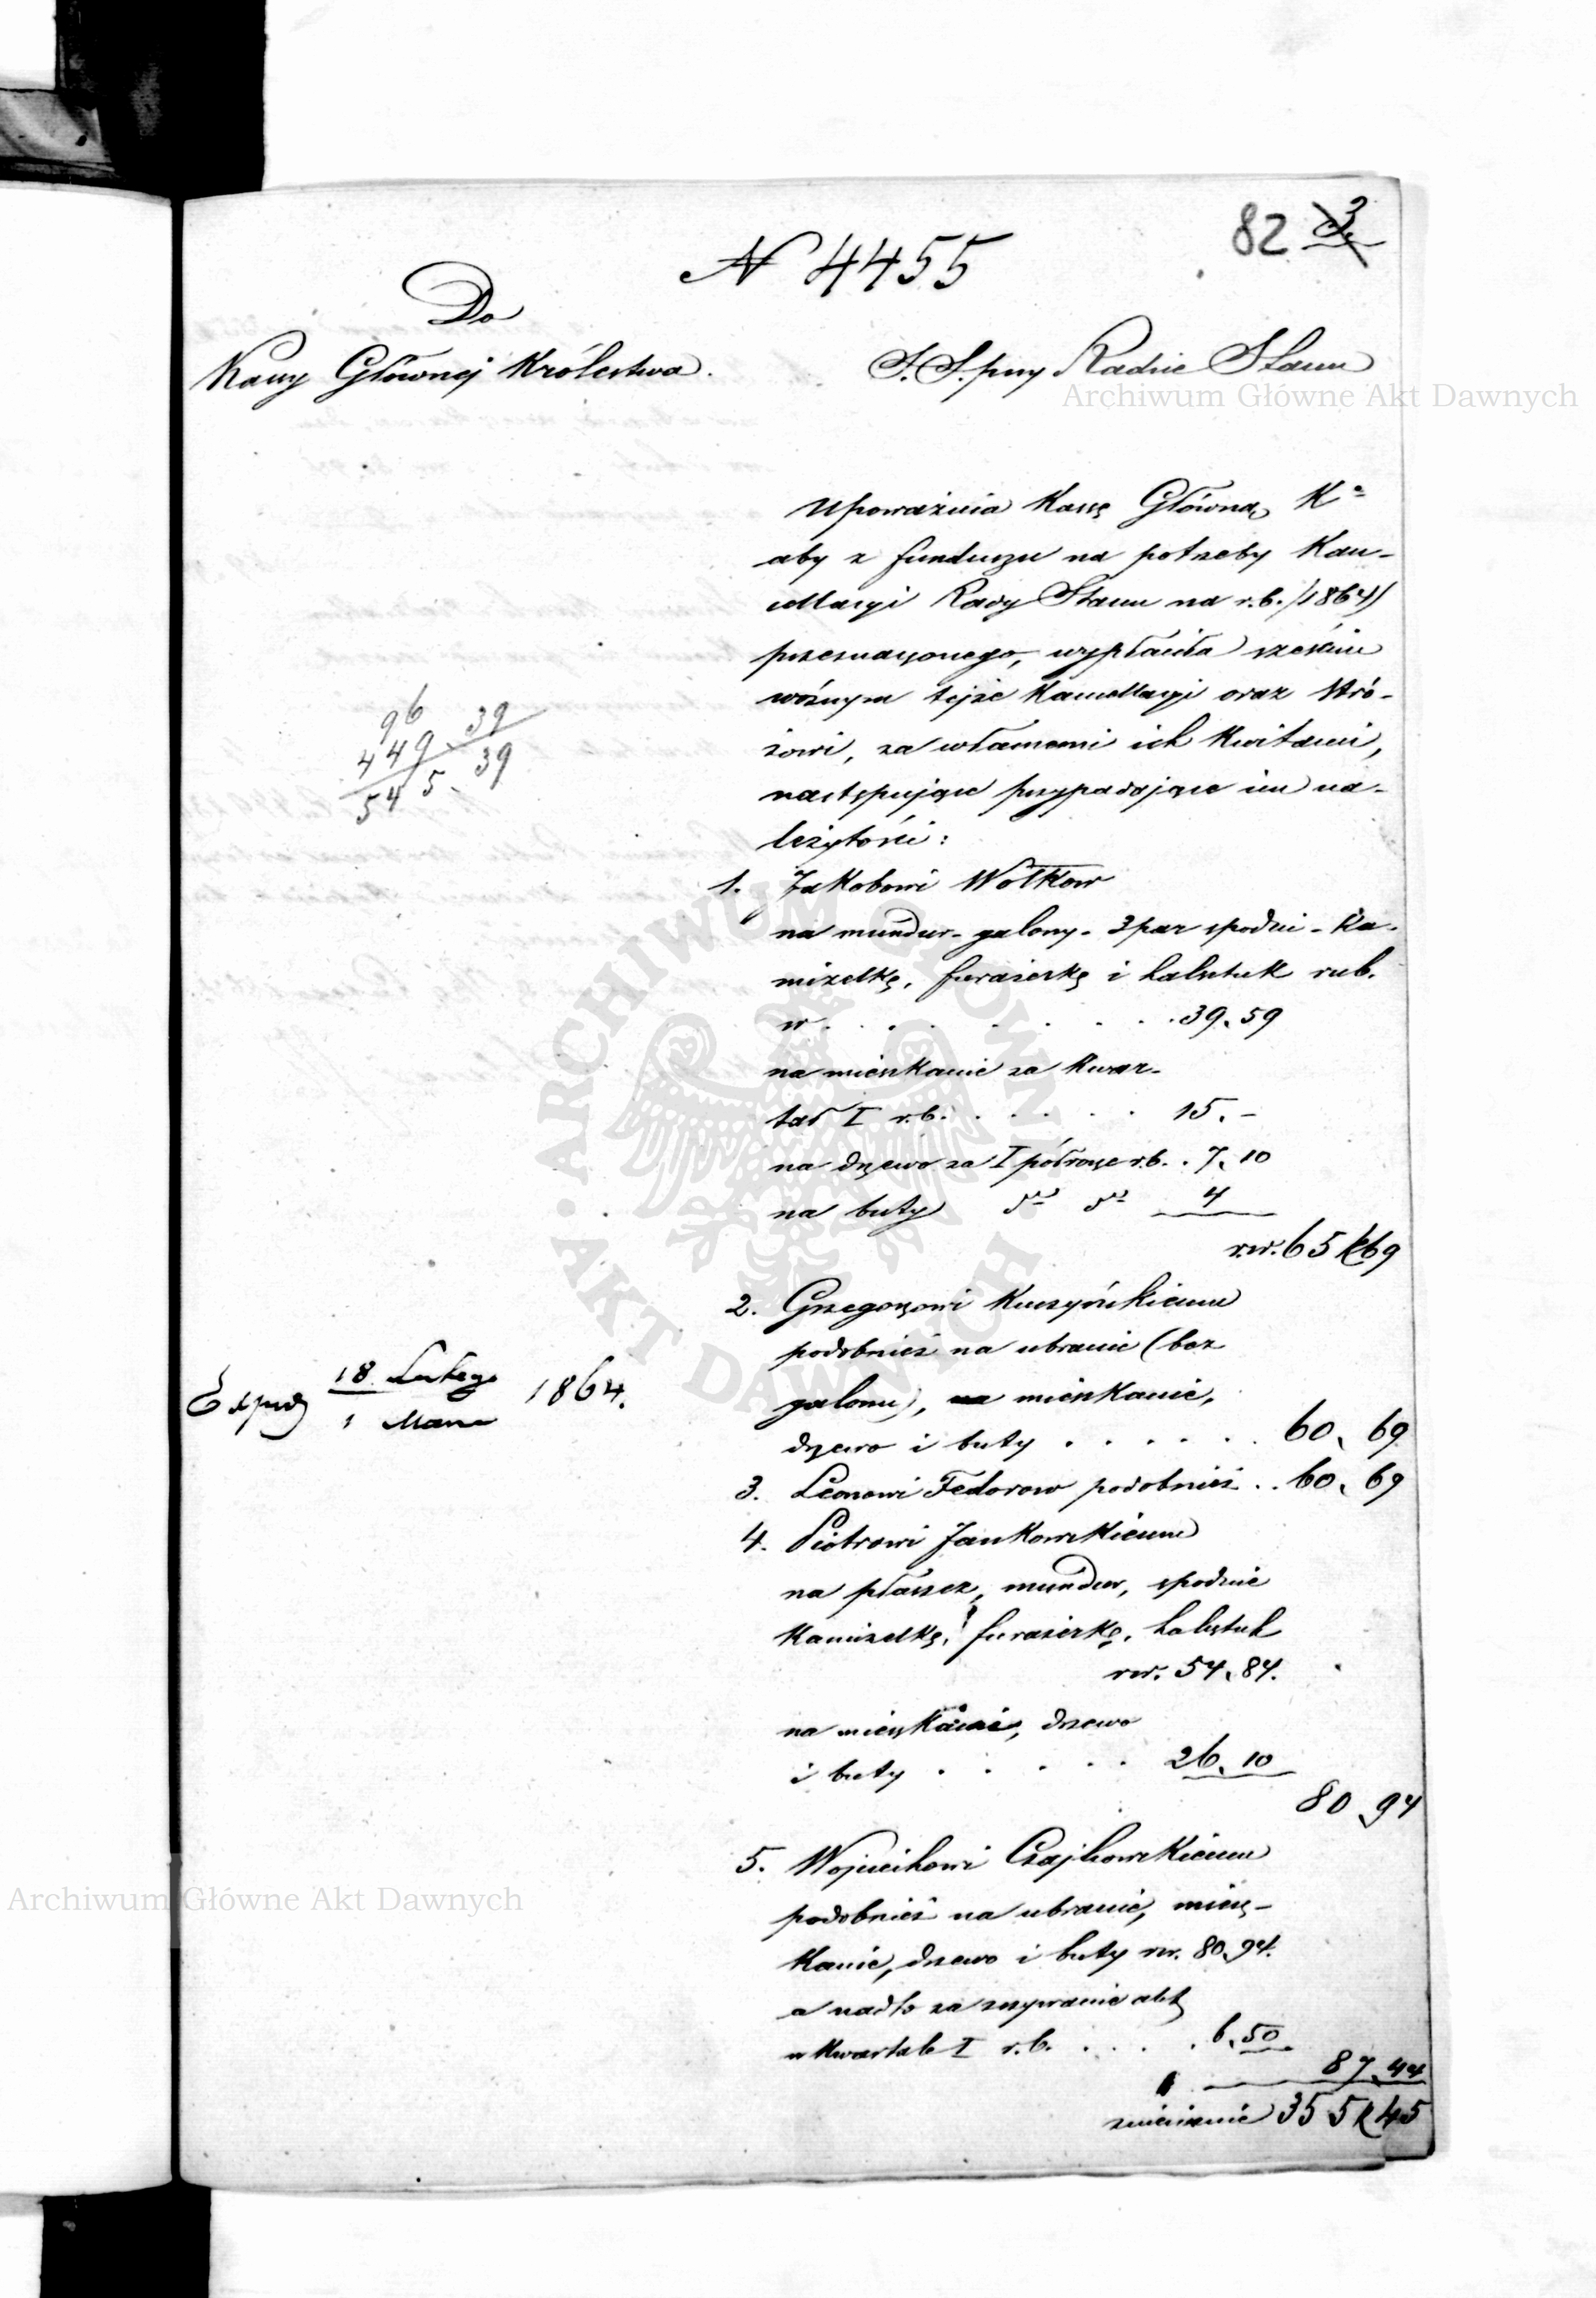 82 3
N 4455
Do
Kassy Głównej Królestwa.
S. S. przy Radzie Stanu
Archiwum Główne Akt Dawnych
Upoważnia Kassę Główną Kª
aby z funduszu na potrzeby Kan-
cellaryi Rady Stanu na r.b. /1864/
przeznaczonego, wypłaciła sześciu
woźnym tejże Kancellaryi oraz Stró-
żowi, za własnemi ich kwitami,
następujące przypadające im na-
leżytości:
96
449 39
545. 39
1. Jakobowi Wołkow
na mundur - galony - 3 par spodni - ka-
mizelkę, furażerkę i halsztuk rub.
sr . . . . . . . . 39. 59
na mieszkanie za kwar-
tał I r.b. . . . . . 15. -
na drzewo za I półrocze r.b. . 7. 10
na buty dto dto 4
rsr. 65 k 69
2. Grzegorzowi Kuczyńskiemu
podobnież na ubranie (bez
galonu), na mieszkanie,
drzewo i buty . . . . . . 60. 69
3. Leonowi Fedorow podobnież . . 60. 69
4. Piotrowi Jankowskiemu
na płaszcz, mundur, spodnie
kamizelkę, furażerkę, halsztuk
rsr. 54. 84.
na mieszkanie, drzewo
i buty . . . . . 26. 10
80. 94
5. Wojciechowi Czajkowskiemu
podobnież na ubranie, miesz-
kanie, drzewo i buty rsr. 80. 94.
a nadto za zszywanie akt
w kwartale I r.b. . . . . 6. 50
87. 44
zniesienie 355 k 45
Exped 18 Lutego 1864.
1 Marca
Archiwum Główne Akt Dawnych
ARCHIWUM GŁÓWNE
· AKT DAWNYCH ·